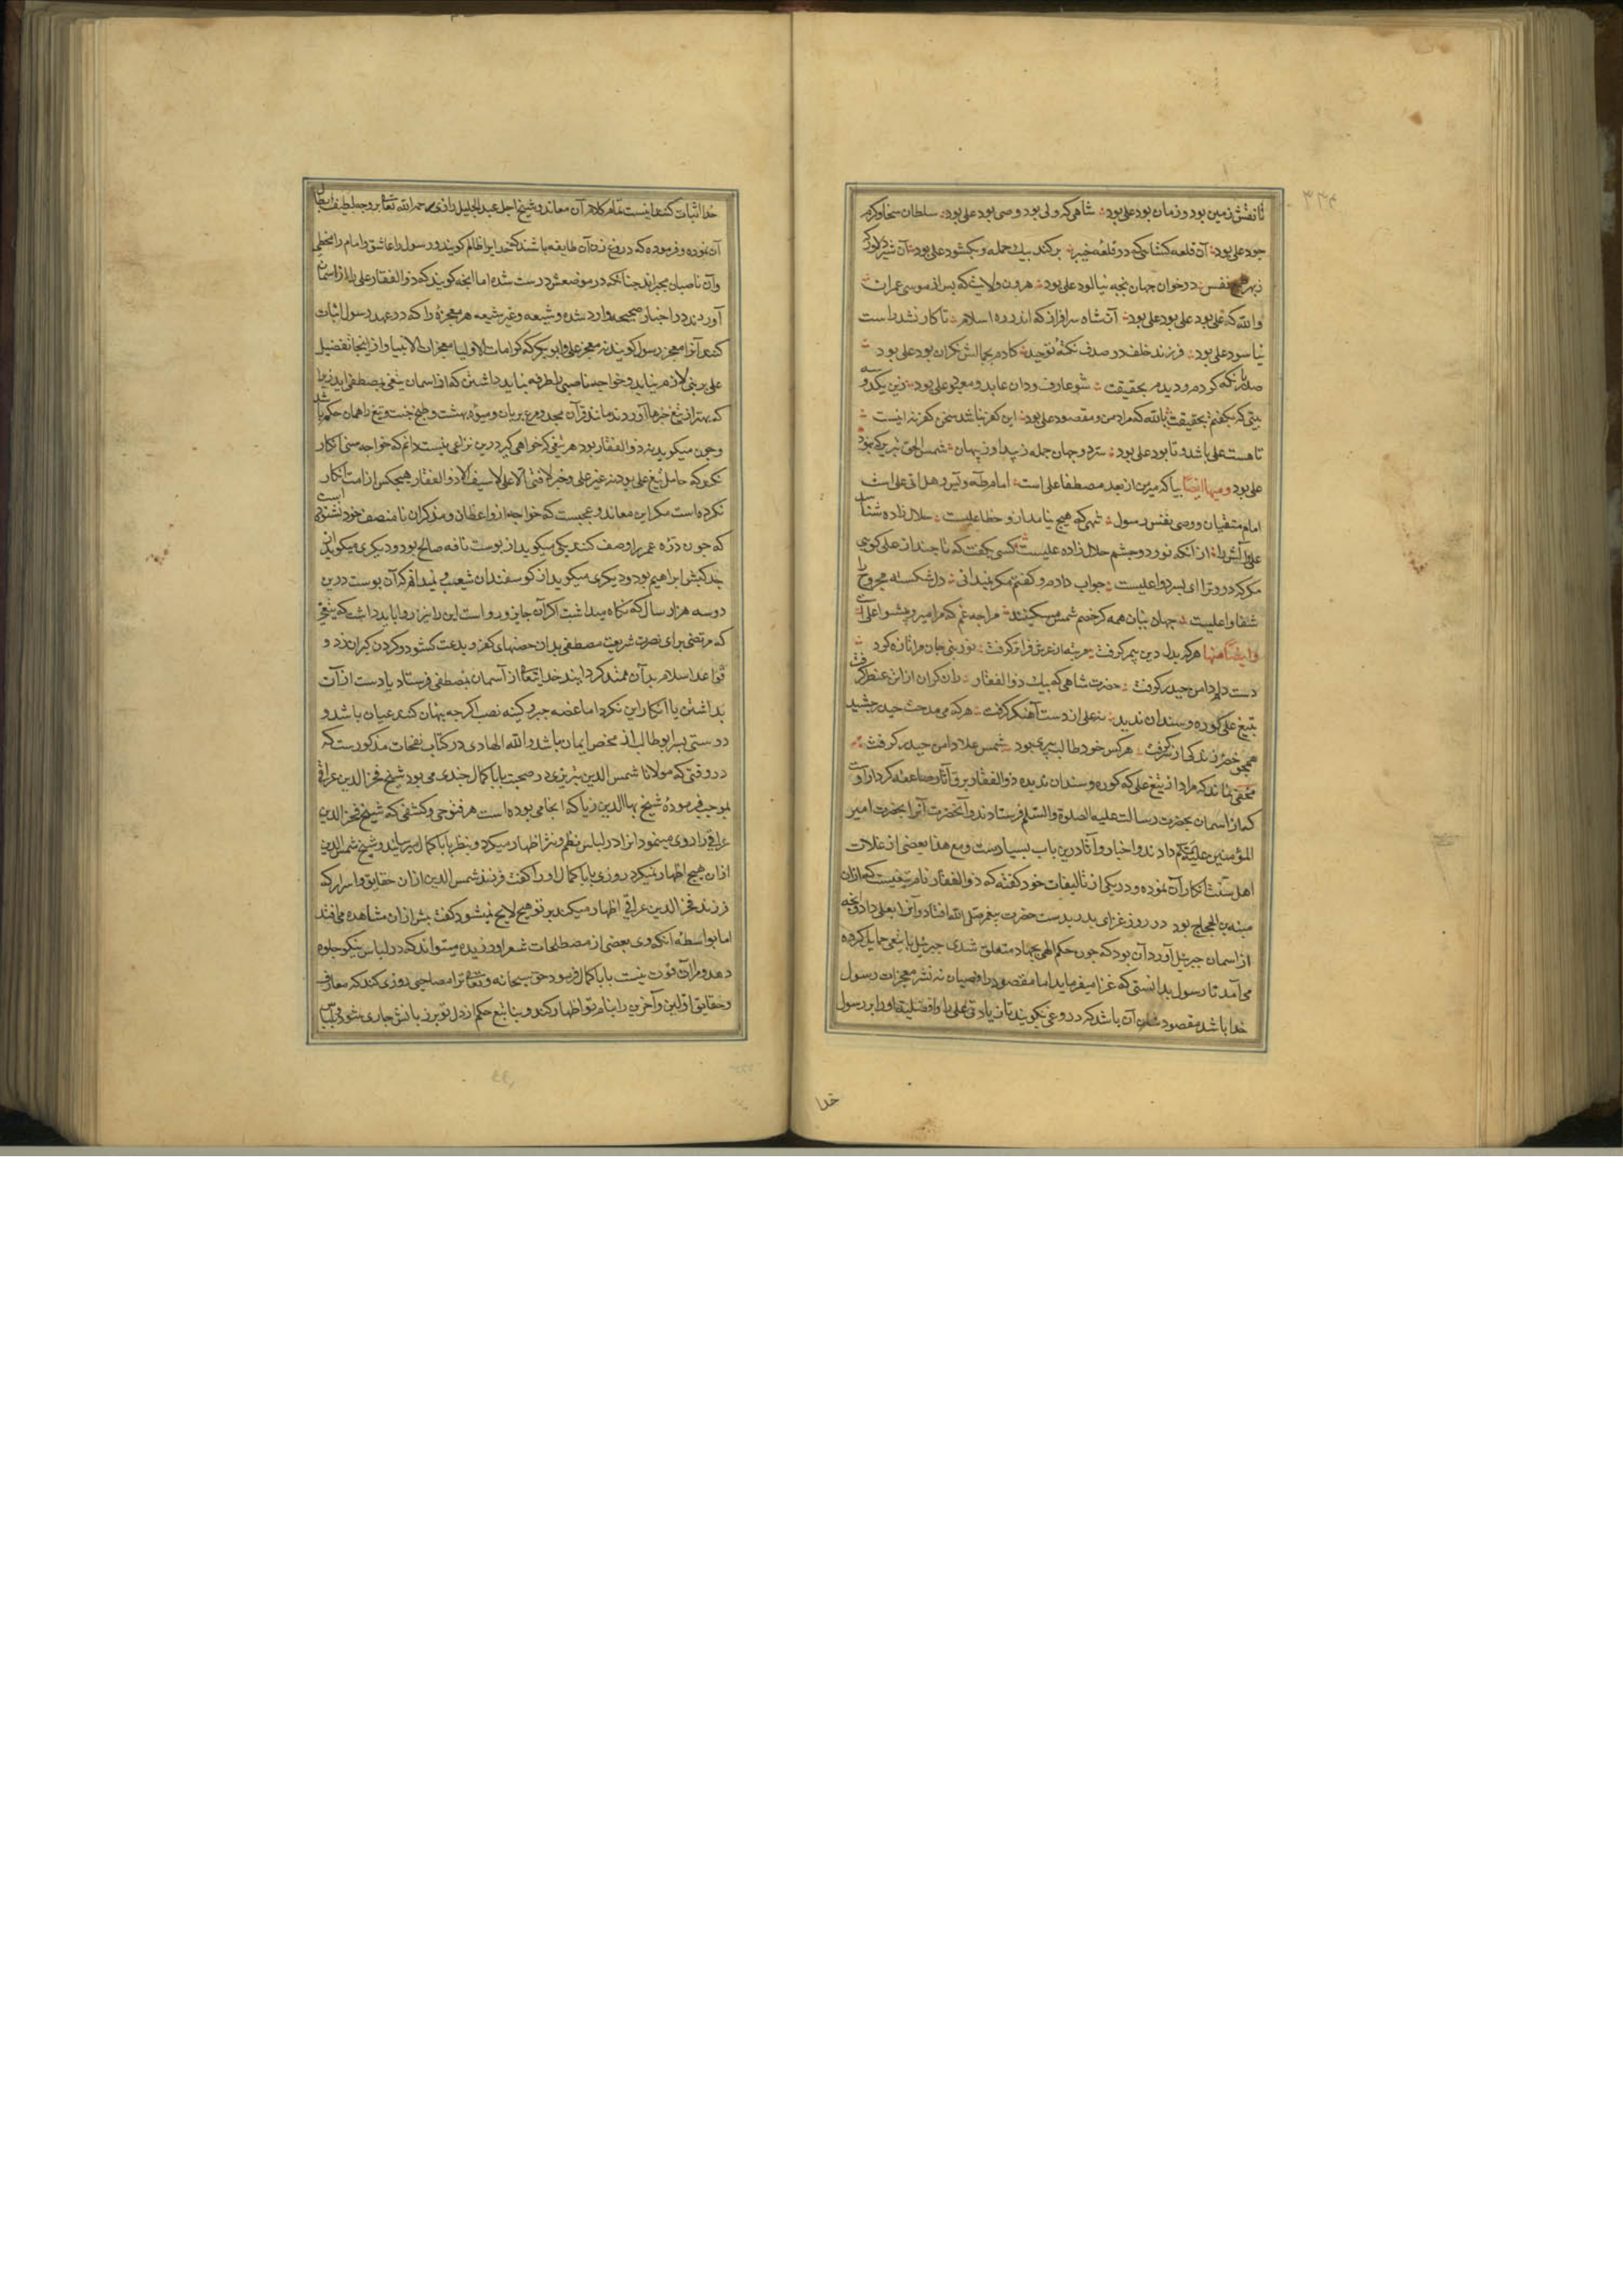 ۳۳۴
تا نقش زمین بود و زمان بود علی بود شاهی که ولی بود و وصی بود علی بود سلطان سخا و کرم
جود علی بود آن قلعه کشائی که در قلعه خیبر برکند بیک حمله و بکشود علی بود آن شیر دلاور که
نفس در خوان جهان پنجه نیالود علی بود هرون ولایت که پس از موسی عمران
والله که علی بود علی بود علی بود آن شاه سرافراز که اندر ره اسلام تا کار نشد راست
نیاسود علی بود فرزند خلف در صدف نکته توحید کادم بجمالش نکران بود علی بود
که کردم و دیدم بحقیقت عارف و دان عابد و معبود علی بود زین یکدو سه
بیتی که بکفتم بحقیقت بالله که مراد من و مقصود علی بود این کفر نباشد سخن کفر نه اینست
تا هست علی باشد و تا بود علی بود سرّ دو جهان جمله ز پیدا و ز پنهان شمس الحق تبریز که بنمود
علی بود و منها ایضا بیا که میر من از بعد مصطفا علی است امام طه و یس و هل اتی علی است
امام متقیان و وصی نفس رسول شهی که هیچ نیامد ازو خطا علیست حلال زاده شناسد
علی از آنکه نور دو چشم حلال زاده علیست کسی بکفت که تا چند از علی کویی
مکر که درد ترا ای پسر دوا علیست جواب دادم و کفتم مکر نمیدانی دل شکسته مجروح را
شفا و علیست جهان بیان همه کر خصم شمس مسکینند مرا چه غم که مرا میر و پیشوا علی است
و ایضا منها هر که بدل دین پیمبر کرفت مرتبه از عرش فراتر کرفت نور نبی جان مرا تازه کرد
دست دلم دامن حیدر کرفت حضرت شاهی که بیک ذوالفقار
تیغ علی کوره و سندان ندید نه علی از دست آهنکر کرفت هر که می مدحت حیدر چشید
همچو خضر زندکی از سر کرفت هر کس خود طالب پیری بود شمس علا دامن حیدر کرفت
مخفی نماند که مراد از تیغ علی که کوره و سندان ندیده ذوالفقار برق آثار صاعقه کردار اوست
که از اسمان بحضرت رسالت علیه الصلوة والسلام فرستادند و آنحضرت آنرا بحضرت امیر
المؤمنین علیه السلم دادند و اخبار و آثار درین باب بسیارست و مع هذا بعضی از علامات
اهل سنت انکار آن نموده و در یکی از تالیفات خود کفته که ذوالفقار نام تیغیست که از ان
منبه بن الحجاج بود در روز غزای بدر بدست حضرت پیغمبر صلی الله افتاد و آنرا بعلی داد و آنچه
از اسمان جبرئیل آورد آن بود که چون حکم الهی بجهاد متعلق شدی جبرئیل با تیغی حمایل کرده
می آمد تا رسول بدانستی که غزا میفرماید اما مقصود رافضیان نه نشر معجزات رسول
خدا باشد مقصود شان آن باشد که دروغی بکویند تا زیادتی علی را و افضلیت او را بر رسول
خدا
خدا اثبات کنند اینست تمام کلام آن معاند و شیخ اجل عبد الجلیل رازی رحمه الله تعالی بر وجه لطیف ابطال
آن نموده و فرموده که دروغ زن آن طایفه باشند که خدا را ظالم کویند و رسول را عاشق و امام را مخطی
وآن ناصبیان مجبراند چنانکه در موضعش درست شده اما آنچه کویند که ذوالفقار علی را از اسمان
آوردند در اخبار صحیحه وارد شده و شیعه و غیر شیعه هر معجزه را که در عهد رسول اثبات
کنند آنرا معجز رسول کویند نه معجز علی و ابوبکر که کرامات الاولیا معجزات الانبیا و از اینجا تفضیل
علی بر نبی لازم نیاید و خواجه ناصبی را طرفه نباید داشتن که از اسمان تیغی بمصطفی اید زیرا
که بهتر از تیغ خرما آوردند مانند قرآن مجید و مرغ بریان و میوه بهشت و طبخ جنت و تیغ را همان حکم باشد
و چون میکوید نه ذوالفقار بود هر تیغی که خواهی کیر درین نزاعی نیست دانم که خواجه سنی انکار
نکرد که حامل تیغ علی بود نه غیر علی و خبر لافتی الا علی لاسیف الا ذوالفقار هیچکس از امت انکار
نکرده است مکر این معاند و عجبست که خواجه از واعظان و مذکران نامنصف خود نشنیده است
که چون درّه عمر را وصف کنند یکی میکوید از پوست ناقه صالح بود و دیکری میکوید از
کبش ابراهیم بود و دیکری میکوید از کوسفندان شعیب نمیدانم که آن پوست درین
دو سه هزار سال که نکاه میداشت اکر آن جایز و رواست این را نیز روا باید داشت که تیغی
که مرتضی برای نصرت شریعت مصطفی بدان حصنهای کفر و بدعت کشود و کردن کبران زد و
قواعد اسلام بدان ممهد کردانید خدایتعالی از آسمان بمصطفی فرستاد یا دست از آن
بداشتن یا انکار این نکردن اما غصه جبر و کینه نصب اکرچه پنهان کنند عیان باشد و
دوستی پسر ابوطالب از محض ایمان باشد والله الهادی در کتاب نفحات مذکورست که
در وقتی که مولانا شمس الدین تبریزی در صحبت بابا کمال جندی می بود شیخ فخر الدین عراقی
بموجب فرموده شیخ بهاالدین زریا که انجا می بوده است هر فتوحی و کشفی که شیخ فخر الدین
عراقی را روی مینمود آنرا در لباس نظم و نثر اظهار میکرد و بنظر بابا کمال میرسانید و شیخ شمس الدین
از ان هیچ اظهار نمیکرد روزی بابا کمال او را کفت فرزند شمس الدین از ان حقایق و اسرار که
فرزند فخر الدین عراقی اظهار میکند بر تو هیچ لایح نمیشود کفت بیش از ان مشاهده می افتد
اما بواسطه آنکه وی بعضی از مصطلحات شعرا ورزیده میتواند که در لباس نیکو جلوه
دهد و مرا آن قوت نیست بابا کمال فرمود حق سبحانه و تعالی ترا مصاحبی روزی کند که معارف
و حقایق اولین و آخرین را بنام تو اظهار کند و ینابیع حکم از دل تو بر زبانش جاری شود